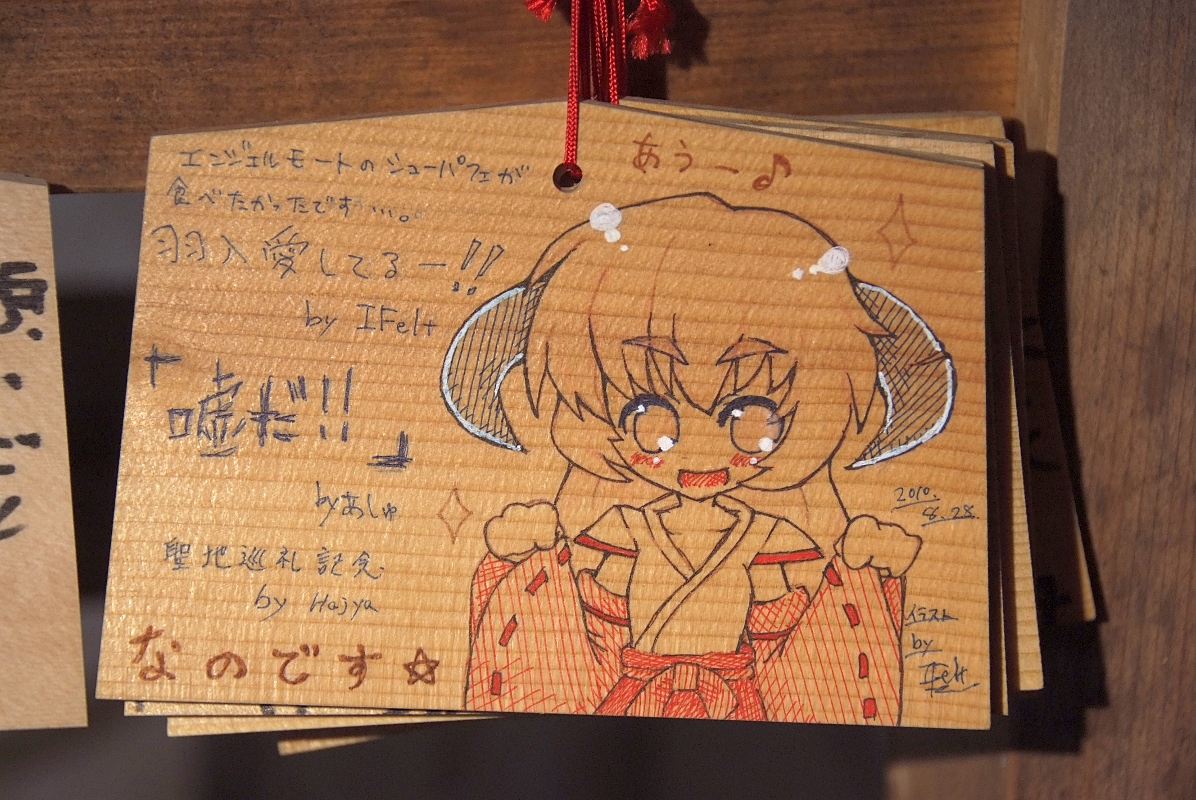 エンジェルモートのシューパフェが
食べたかったです…。
羽入愛してるー!!
by IFelt
「嘘だ!!」
byあしゅ
聖地巡礼記念
by Hajya
なのです☆
あうー♪
2010.
8.28.
イラスト
by
IFelt